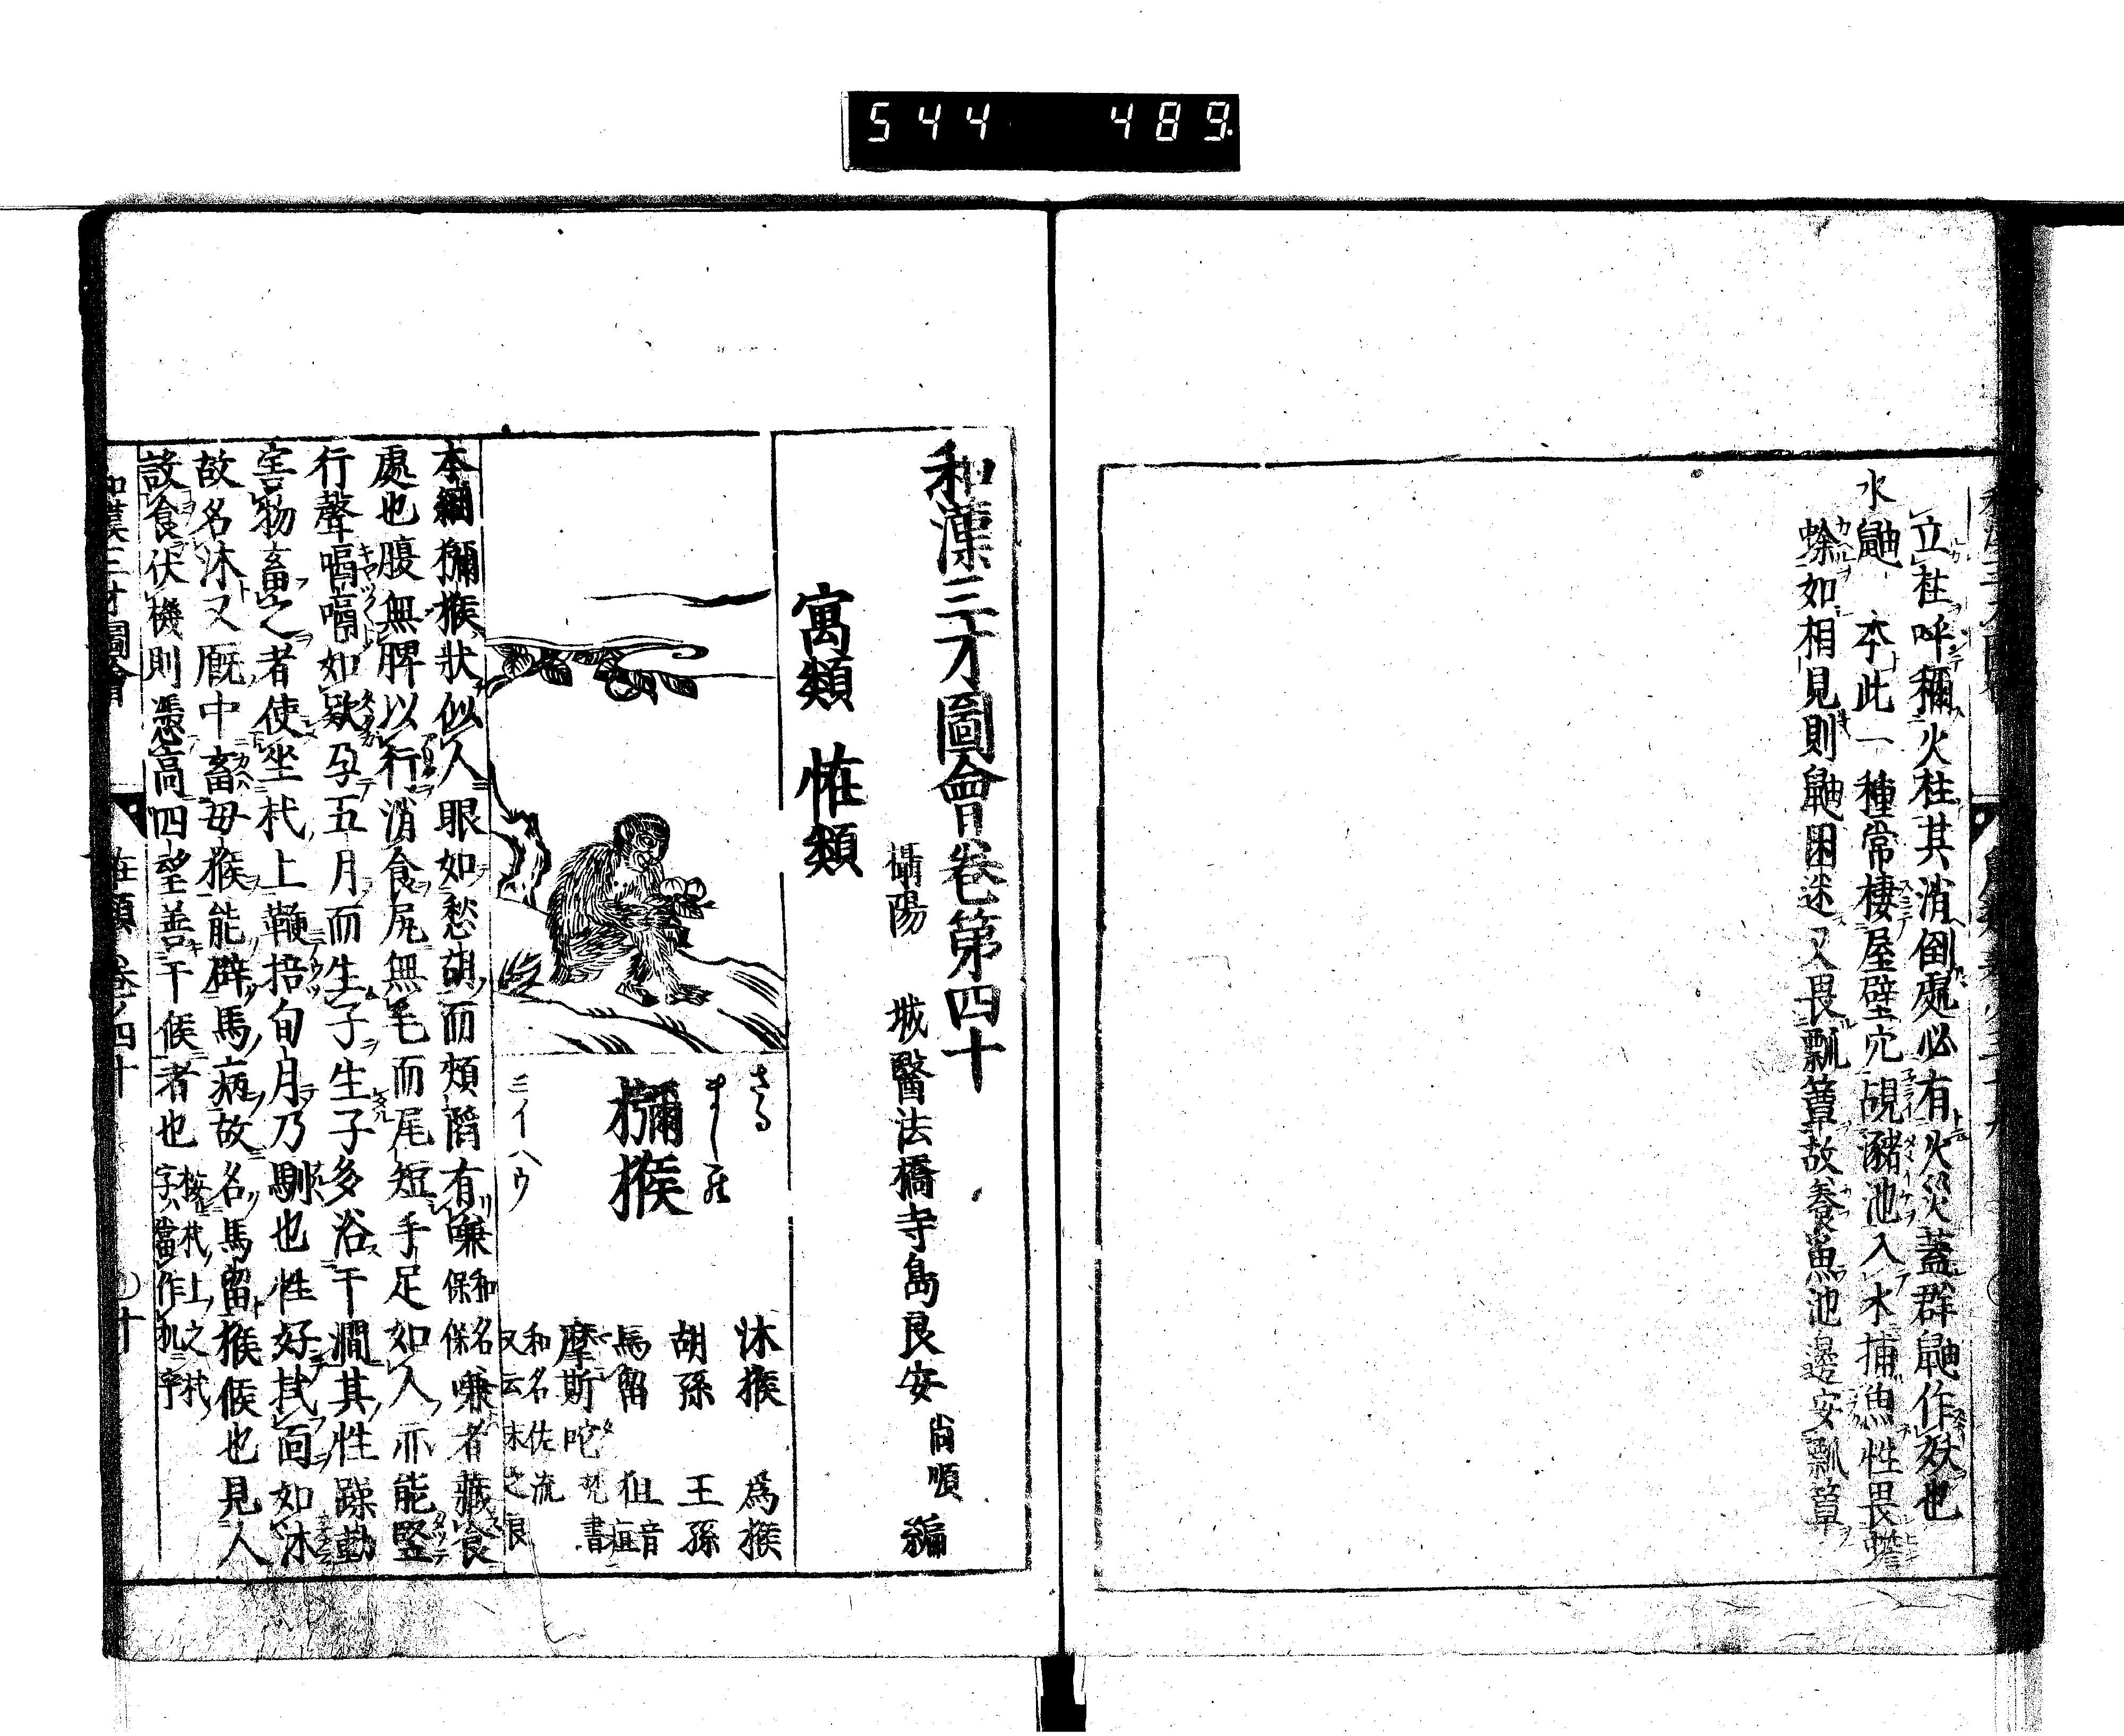 544 489
立柱呼穪火柱其消倒處必有火災蓋群鼬作妖也
水鼬 本此一種常棲屋壁穴覘瀦池入水捕魚性畏蟾
蜍如相見則鼬困迷又畏瓢簞故養魚池邊安瓢簞
和漢三才圖會卷第四十
攝陽 城醫法橋寺島良安尚順編
寓類 恠類
さる
獼猴
ミイハウ
沐猴 爲猴
胡孫 王孫
馬留 狙音疽
摩斯咤梵書
和名佐流
本綱獼猴狀似人眼如愁胡而頰䧟有嗛和名保保嗛者藏食
處也腹無脾以行消食尻無毛而尾短手足如人亦能竪
行聲嗝嗝如欬孕五月而生子生子多浴于澗其性躁動
害物畜之者使坐杙上鞭掊旬月乃馴也性好拭面如沐
故名沐又厩中畜母猴能辟馬病故名馬留猴候也見人
設食伏機則憑高四望善于候者也按杙上之杙字當作杌字
和漢三才圖會 恠類 卷ノ四十 〇十